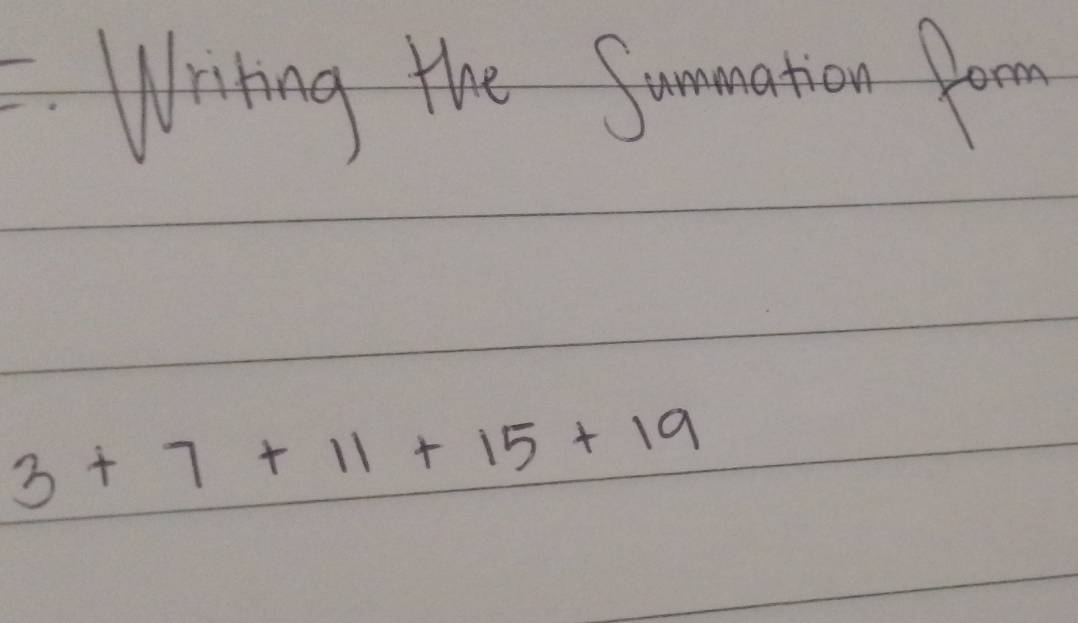 Writing the Summation form
3 + 7 + 11 + 15 + 19